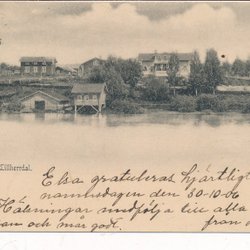 Lillherrdal.
Elsa gratuleras hjärtligt
namnsdagen den 30-10-06
Hälsningar medfölja till alla
från
an och mår god.